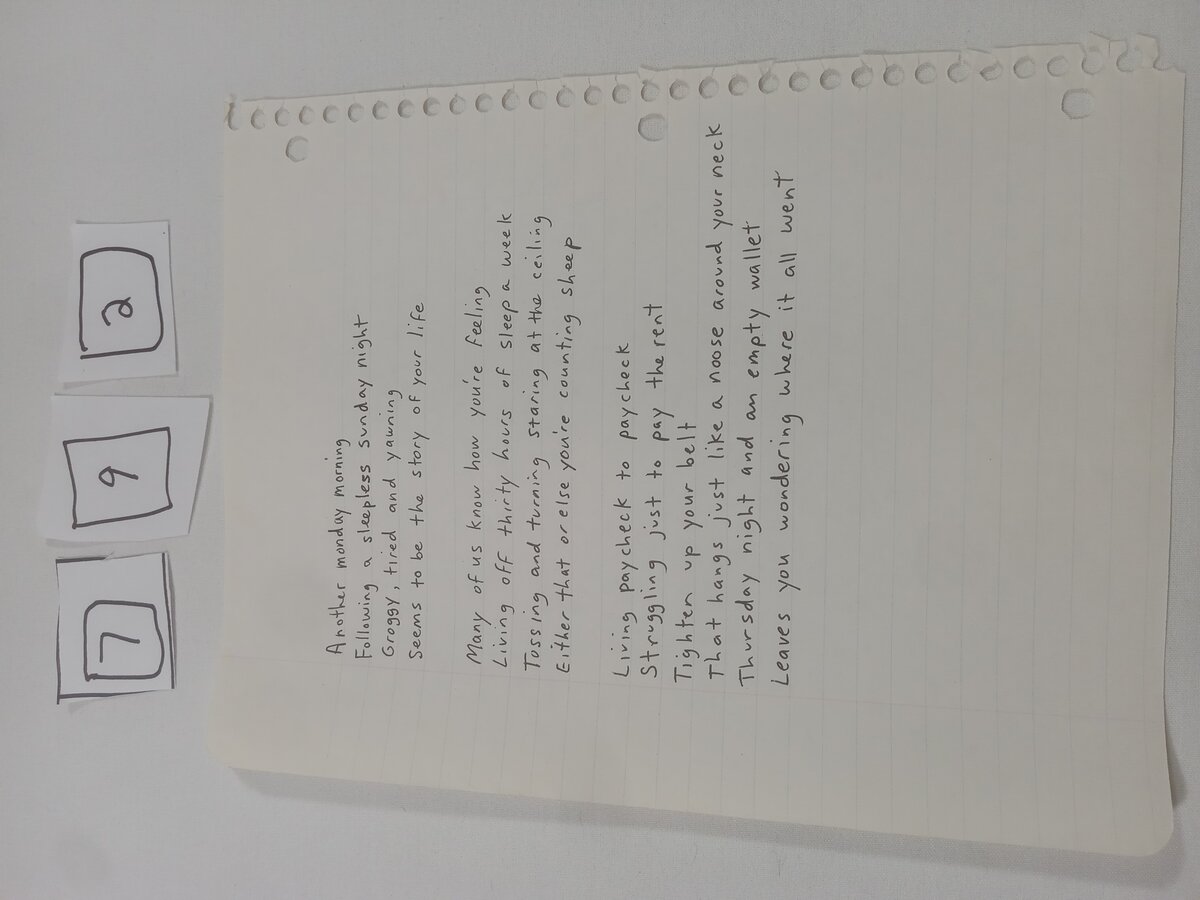 7 9 2
Another monday morning
Following a sleepless sunday night
Groggy, tired and yawning
Seems to be the story of your life
Many of us know how you're feeling
Living off thirty hours of sleep a week
Tossing and turning staring at the ceiling
Either that or else you're counting sheep
Living paycheck to paycheck
Struggling just to pay the rent
Tighten up your belt
That hangs just like a noose around your neck
Thursday night and an empty wallet
Leaves you wondering where it all went